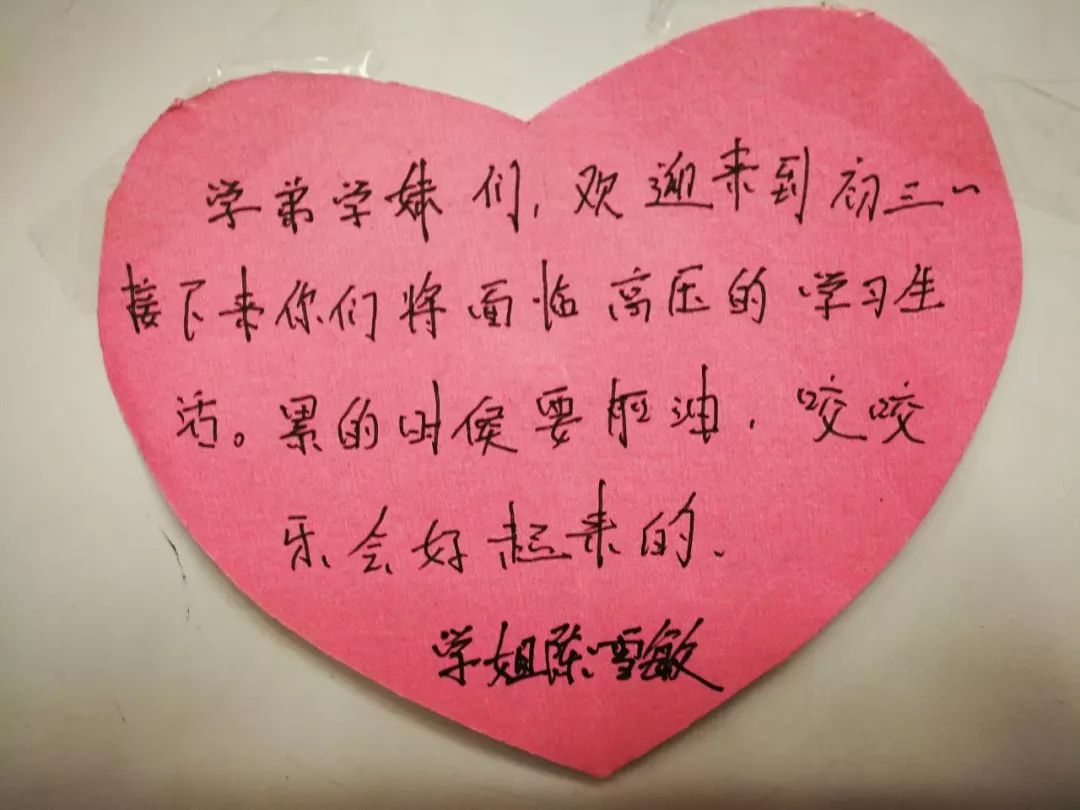 学弟学妹们,欢迎来到初三~
接下来你们将面临高压的学习生
活。累的时候要加油,咬咬
乐会好起来的.
学姐陈雪敏